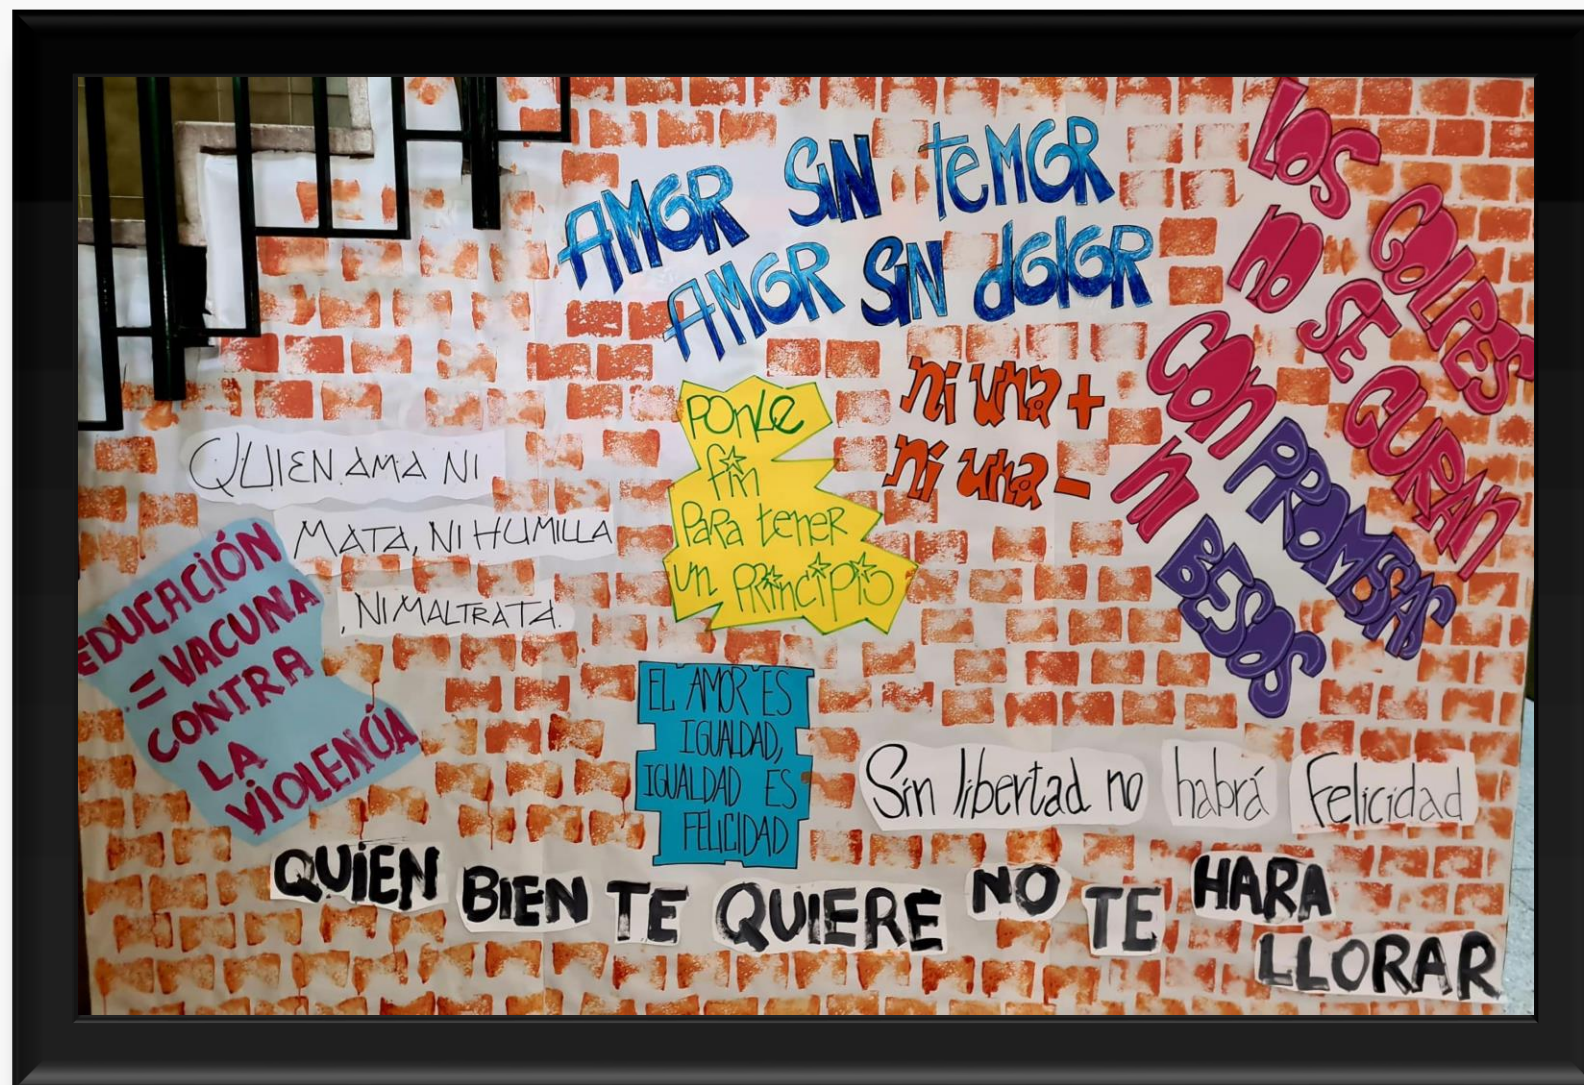 AMOR SIN teMOR
AMOR SIN dOlOR
LOS GOLPES
NO SE CURAN
CON PROMESAS
NI BESOS
ni una +
ni una -
PONLE
fin
PaRa tener
un PRincipio
QUIEN AMA NI
MATA, NI HUMILLA
, NI MALTRATA.
EDUCACIÓN
= VACUNA
CONTRA
LA
VIOLENCIA
EL AMOR ES
IGUALDAD,
IGUALDAD ES
FELICIDAD
Sin libertad no habrá Felicidad
QUIEN BIEN TE QUIERE NO TE HARA
LLORAR